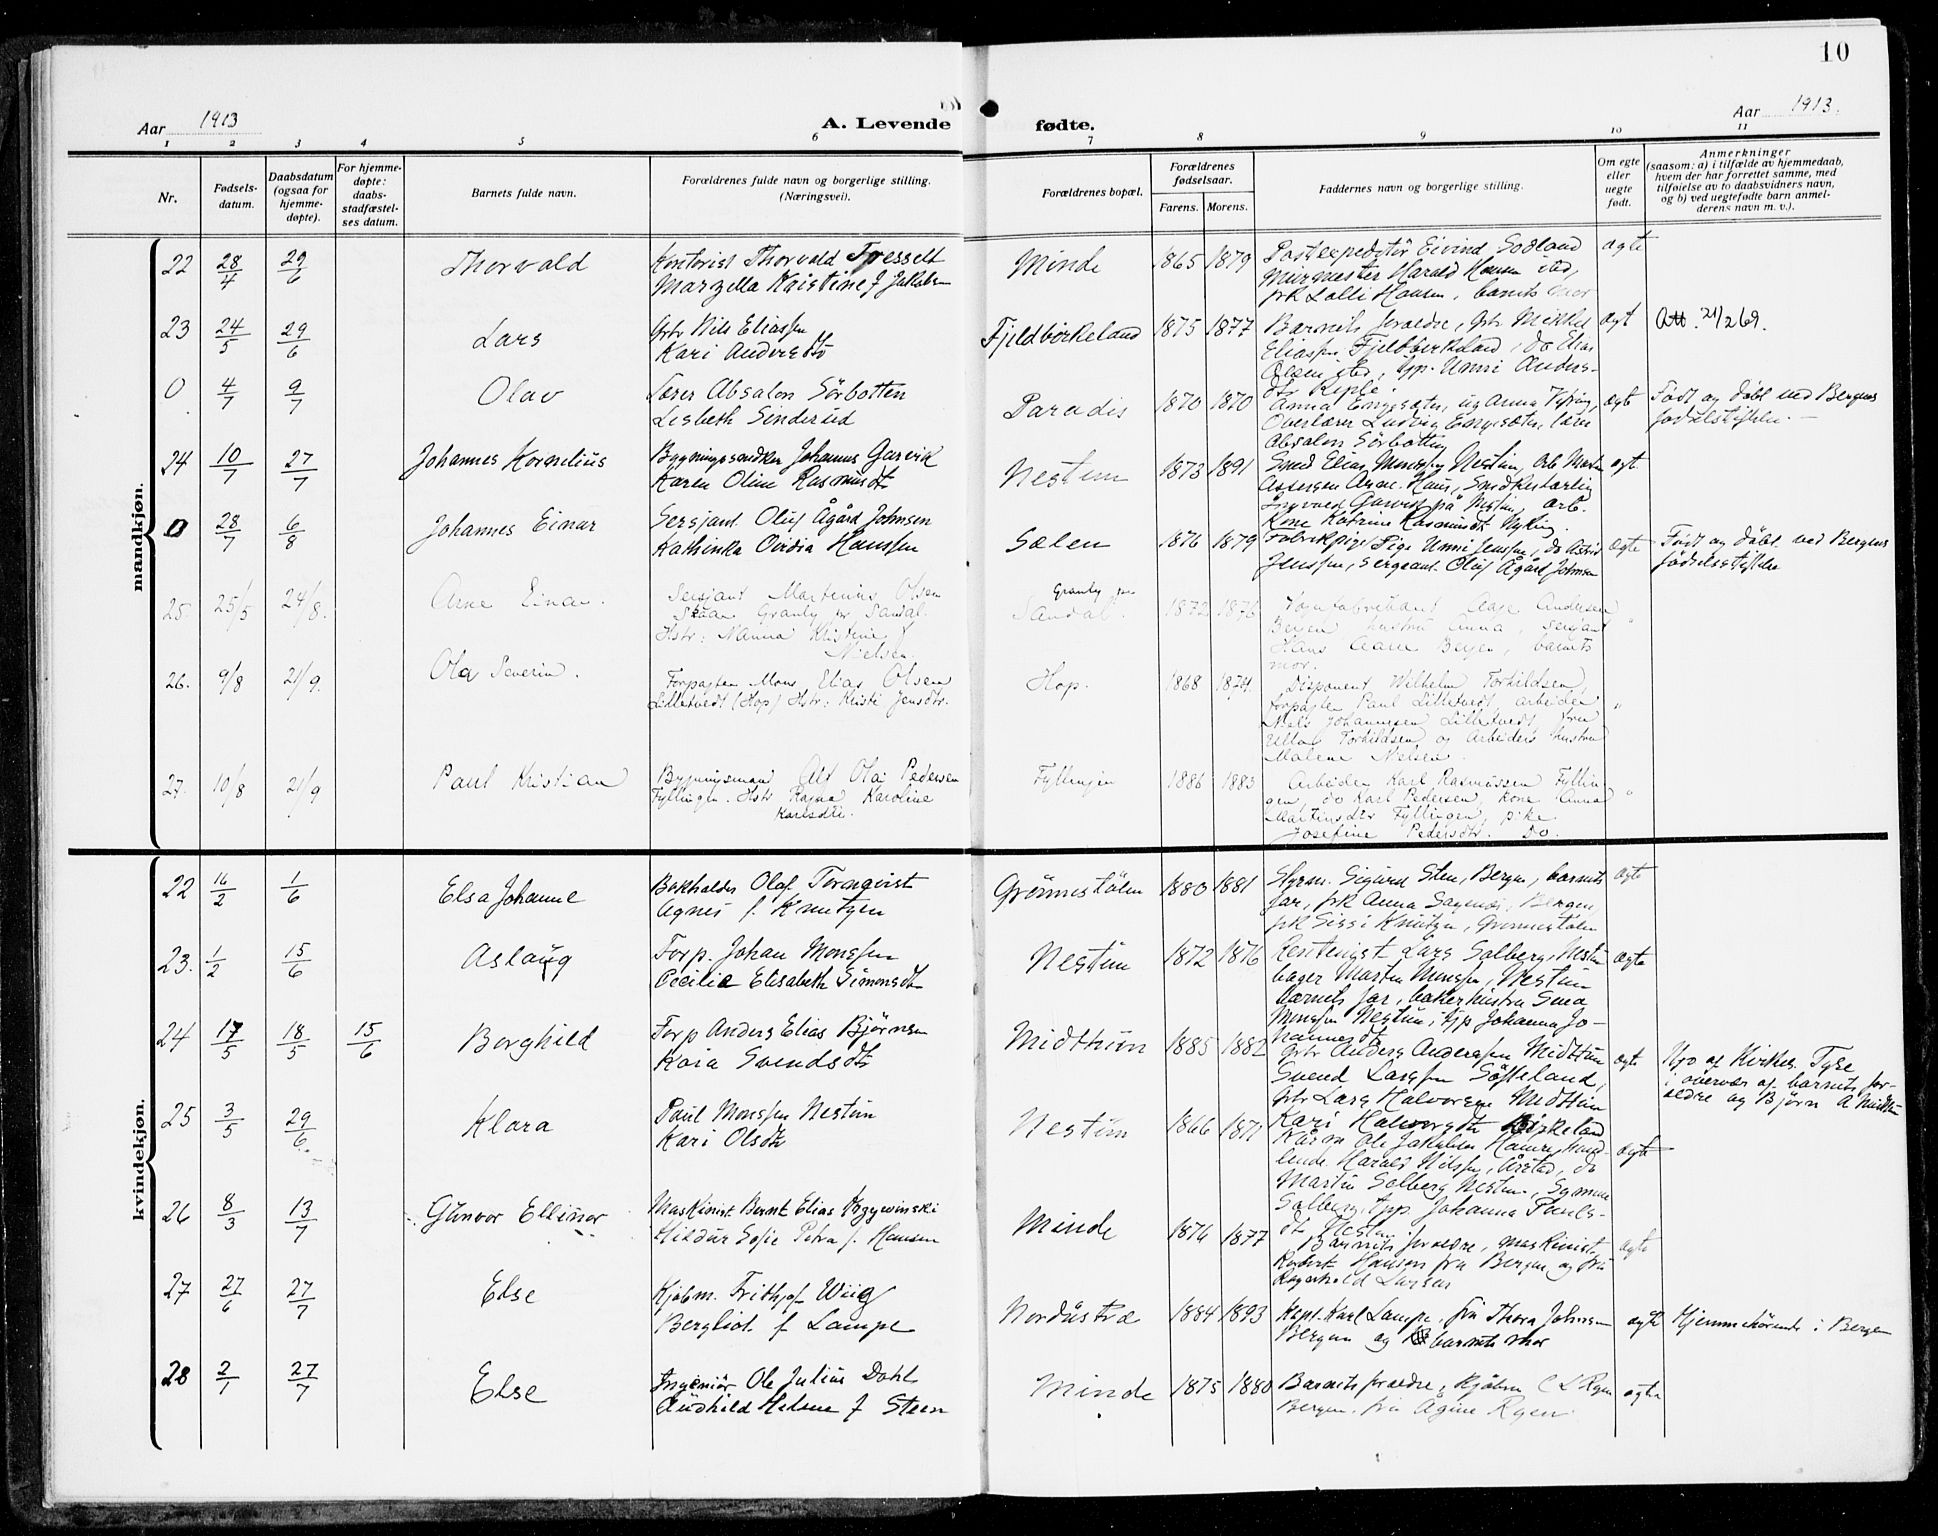 10
Aar 1913
A. Levende
fødte.
Aar 1913.
1 2 3 4 5 6 7 8 9 10 11
Nr.
Fødsels-
datum.
Daabsdatum
(ogsaa for
hjemme-
døpte).
For hjemme-
døpte:
daabs-
stadfæstel-
ses datum.
Barnets fulde navn.
Forældrenes fulde navn og borgerlige stilling.
(Næringsvei).
Forældrenes bopæl.
Forældrenes
fødselsaar.
Farens. Morens.
Faddernes navn og borgerlige stilling.
Om egte
eller
uegte
født.
Anmerkninger
(saasom: a) i tilfælde av hjemmedaab,
hvem der har forrettet samme, med
tilføielse av to daabsvidners navn,
og b) ved uegtefødte barn anmel-
derens navn m. v.).
mandkjøn.
22 28/4 29/6 Thorvald
Kontorist Thorvald Tresselt
Margella Kristine f Jakobsen
Minde 1865 1879
Postexpeditør Eivind Sodland
Murmester Harald Hansen isted,
frk Lalli Hansen, barnets mor
ægte
23 24/5 29/6 Lars
Gbr Nils Eliassen
Kari Andersdtr
Fjeldbirkeland 1875 1877
Barnets foreldre, gbr Mikkel
Eliassen Fjeldbirkeland, do Elias
Olsen isted, tpp. Unni Anders-
dtr Riple.
ægt
Att. 21/2 69.
0 4/7 9/7 Olav
Lærer Absalon Sörbotten
Lesbeth Sinderud
Paradis 1870 1870
Anna Engesæter, ug Anna
Overlærer Ludvig Engesæter, lærer
Absalon Sörbotten
ægte
Født og døbt ved Bergens
fødselsstiftelse.
24 10/7 27/7 Johannes Kornelius
Bygningssnedker Johannes Garvik
Karen Oline Rasmusdtr
Nestun 1873 1891
Smed Elias Monssen Nestun, arb Martin
Assersen Arne. Haus, Snedkerlærling
Garvik på Nestun, arb.
Kone Katrine Rasmusdtr Nyking.
ægt.
0 28/7 6/8 Johannes Einar
Sersjant. Oluf Ågård Johnsen
Kathinka Ovidia Hanssen
Sælen 1876 1879
Fabrikpige Unni Jenssen, do Astrid
Jenssen, Sergeant. Oluf Ågård Johnsen
ægte
Født og døbt ved Bergens
fødselsstiftelse
25. 25/5 24/8. Arne Einar.
Sersjant Martinus Olsen
Skaar Granly pr Sandal.
Hstr: Nanna Kristine f
Nielsen.
Granly pr
Sandal. 1872 1876
Tomtefabrikant Aage Andersen
Bergen hustru Anna, sersjant
Hans Aarre Bergen, barnets
mor.
"
26. 9/8 21/9. Ola Severin.
Forpagter Mons Elias Olsen
Litletvedt (Hop) Hstr: Kristi Jensdtr.
Hop. 1868 1874.
Disponent Wilhelm Torkildsen,
forpagter Paul Litletvedt, arbeider
Nels Johannesen Litletvedt, fru
Ulla Torkildsen og Arbeiders hustru
Malene Nielsen.
"
27. 10/8 21/9 Paul Kristian
Bygningsmand Alf Olai Pedersen
Fyllingen. Hstr Ragna Karoline
Karlsdtr.
Fyllingen 1886 1883
Arbeider Karl Rasmussen Fyllin-
gen, do Karl Pedersen, kone Anna
Martinsdtr Fyllingen, pike
Josefine Pedersdtr. Do.
"
kvindekjøn.
22 16/2 1/6 Elsa Johanne
Bokholder Olaf Tornqvist
Agnes f. Knutzen
Grönnestölen 1880 1881
Styrm. Sigurd Sten, Bergen, barnets
far, frk Anna Sagenes, Bergen,
frk Sissi Knutzen, Grönnestölen
ægte
23. 1/2 15/6 Aslaug
Forp. Johan Monssen
Cecilie Elisabeth Simonsdtr
Nestun 1872 1876
Lars Solberg, Nestun
bager Martin Monssen, Nestun
barnets far, bakerhustru Sina
Monssen Nestun, tjp Johanna Jo-
hannesdtr
ægte
24 17/5 18/5 15/6 Borghild
Forp Anders Elias Bjørnsen
Kaia Svendsdtr
Midttun 1885 1882
Gbr Anders Anderssen Midttun
Svend Larssen Söfteland,
Gbr Lars Halvorsen Midttun
Kari Halvorsdtr Birkeland
ægte
Hjd af Kirkes. Tyse
i overvær af barnets for-
ældre og Bjørn A Midttun
25 3/5 29/6 Klara
Paul Monssen Nestun
Kari Olsdtr
Nestun 1866 1871
Kårm Ole Jakobsen Hamre, hand-
lende Harald Nilssen, Årstad, do
Martin Solberg Nestun, Gymnea
Solberg, tpp. Johanna Pauls-
dtr Nestun.
ægte
26 8/3 13/7 Gunvor Ellinor
Maskinist Bernt Elias Krzywinski
Hildur Sofie Petra f. Hansen
Minde 1874 1877
Barnets foreldre, maskinist
Robert Hansen fra Bergen og fru
Ragnhild Larsen
ægte
27 27/6 27/7 Else
Kjøbm. Frithjof Wiig
Bergliot f Lampe
Nordåstræ 1884 1893
Kapt. Karl Lampe, fru Thora Johnsen
Bergen og barnets mor
ægte
Hjemmehörende i Bergen
28 2/1 27/7 Else
Ingeniör Ole Julius Dahl
Audhild Helene f Steen
Minde 1875 1880
Barnets foreldre, kjøbm C L Rgen
Bergen, fru Agine Rgen.
ægte